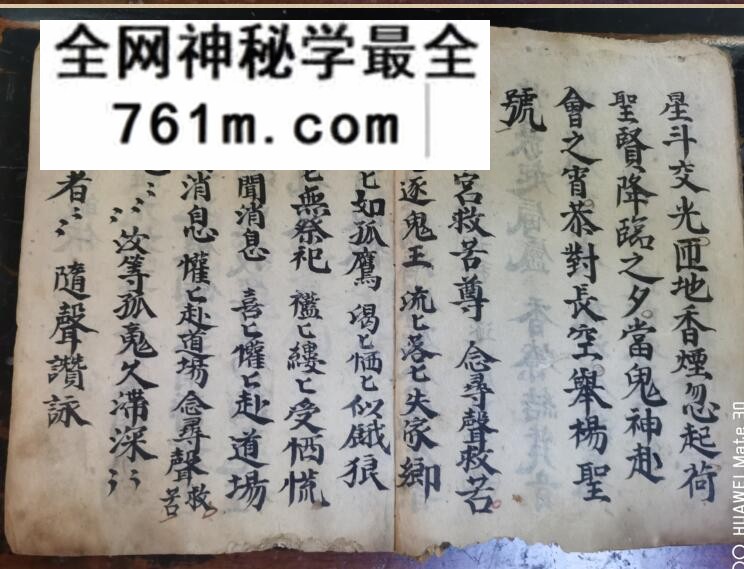 全网神秘学最全
761m.com
星斗交光匝地香煙忽起荷
聖賢降臨之夕當鬼神赴
會之宵恭對長空舉楊聖
號
宮救苦尊 念尋聲救苦
逐鬼王 流匕落匕失家鄉
匕如孤鷹 渴匕恓匕似餓狼
匕無祭祀 襤匕縷匕受恓慌
聞消息 喜匕懽匕赴道場
消息懽匕赴道場 念尋聲救苦
汝等孤魂久滞深
者 隨聲讚詠
HUAWEI Mate 30